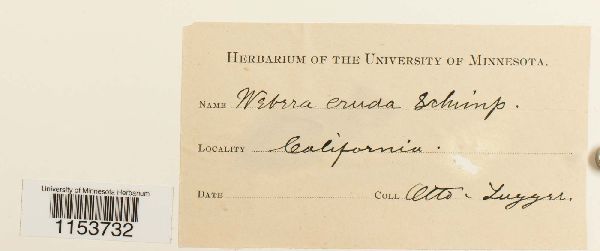 HERBARIUM OF THE UNIVERSITY OF MINNESOTA.
NAME Webera cruda Schimp.
LOCALITY California.
DATE COLL Otto Lugger.
University of Minnesota Herbarium
1153732